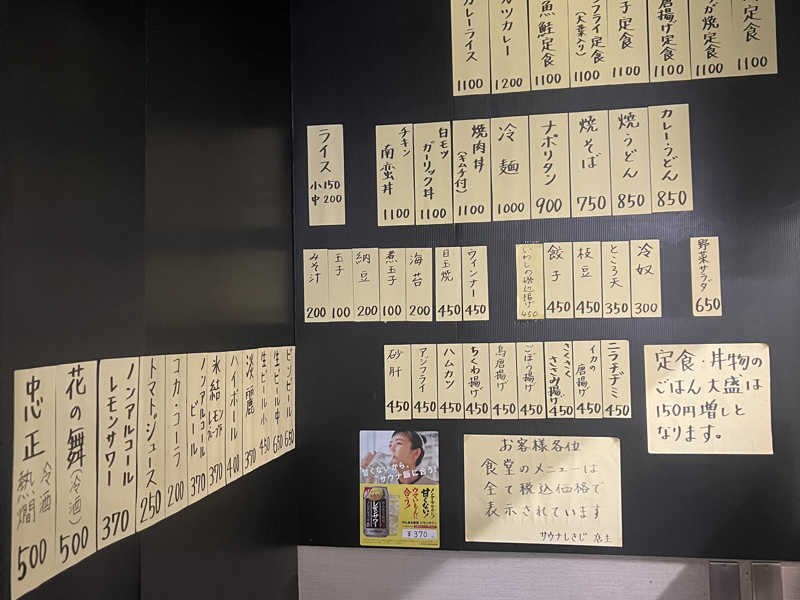 カレーライス 1100
カツカレー 1200
魚鮭定食 1100
フライ定食 (大葉入り) 1100
子定食 1100
唐揚げ定食 1100
が焼定食 1100
定食 1100
ライス 小150 中200
チキン南蛮丼 1100
白モツガーリック丼 1100
焼肉丼 (キムチ付) 1100
冷麺 1000
ナポリタン 900
焼そば 750
焼うどん 850
カレーうどん 850
みそ汁 200
玉子 100
納豆 200
煮玉子 100
海苔 200
目玉焼 450
ウィンナー 450
いわしの磯辺揚げ 450
餃子 450
枝豆 450
ところ天 350
冷奴 300
野菜サラダ 650
砂肝 450
アジフライ 450
ハムカツ 450
ちくわ揚げ 450
鳥唐揚げ 450
ごぼう揚げ 450
さくさくささみ揚げ 450
イカの唐揚げ 450
ニラチヂミ 450
忠正 冷酒 熱燗 500
花の舞 (冷酒) 500
ノンアルコールレモンサワー 370
トマトジュース 250
コカ・コーラ 200
ノンアルコールビール 370
氷結 レモン 370
ハイボール 400
淡麗 390
生ビール小 450
生ビール中 650
ビンビール 650
定食・丼物の
ごはん大盛は
150円増しと
なります。
お客様各位
食堂のメニューは
全て税込価格で
表示されています
サウナしきじ 店主
甘くないから、
サウナ飯に合う!
甘くない!
レモンサワー
¥370